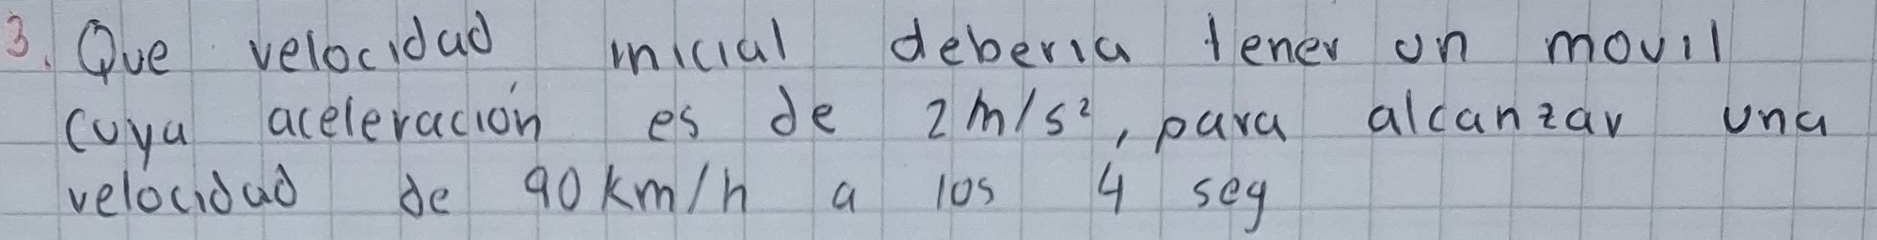 3. Que velocidad inicial deberia tener un movil
cuya aceleración es de 2m/s², para alcanzar una
velocidad de 90km/h a los 4 seg